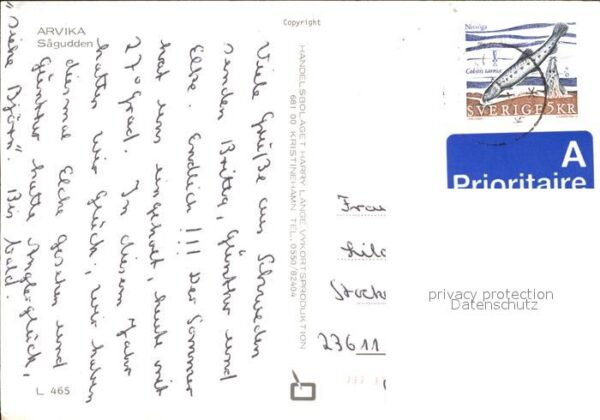 Copyright
ARVIKA
Sågudden
Viele Grüße aus Schweden
senden Britta, Günther und
Elke. Endlich!!! Der Sommer
hat uns eingeholt, heute mit
27 Grad. In diesem Jahr
hatten wir Glück, wir haben
diesmal Elche gesehen und
Günther hatte Anglerglück,
"siehe Björn". Bis
bald.
L 465
HANDELSBOLAGET HARRY LANGE VYKORTSPRODUKTION
681 00 KRISTINEHAMN TEL. 0550/82404
Nissöga
Cobitis taenia
SVERIGE 5KR
A
Prioritaire
Frau
Stock
23611
privacy protection
Datenschutz